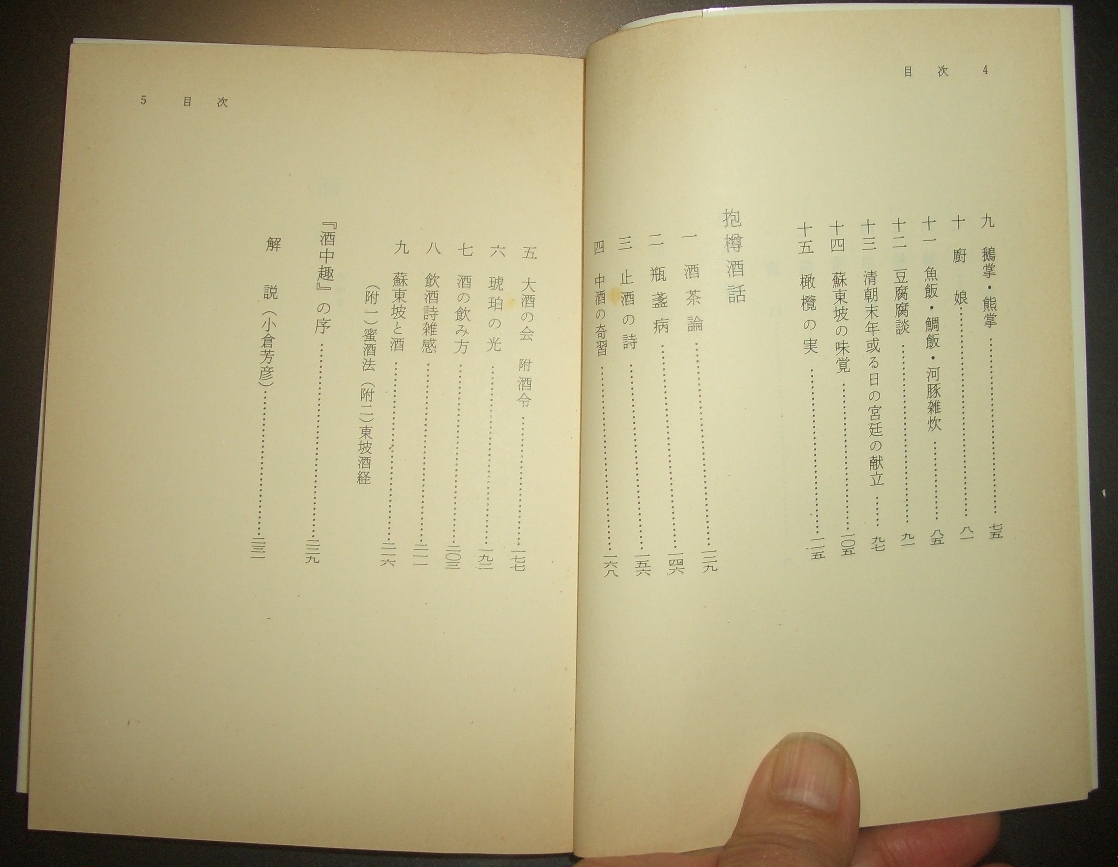 目次 4
九 鵝掌・熊掌………七五
十 廚娘………八一
十一 魚飯・鯛飯・河豚雑炊………八五
十二 豆腐腐談………九一
十三 清朝末年或る日の宮廷の献立………九七
十四 蘇東坡の味覚………一〇五
十五 橄欖の実………一一五
抱樽酒話
一 酒茶論………一二九
二 瓶盞病………一四六
三 止酒の詩………一五六
四 中酒の奇習………一六八
5 目次
五 大酒の会 附酒令………一七七
六 琥珀の光………一九二
七 酒の飲み方………二〇三
八 飲酒詩雑感………二一一
九 蘇東坡と酒………二一六
(附一)蜜酒法 (附二)東坡酒経
『酒中趣』の序………二二九
解説(小倉芳彦)………二三一